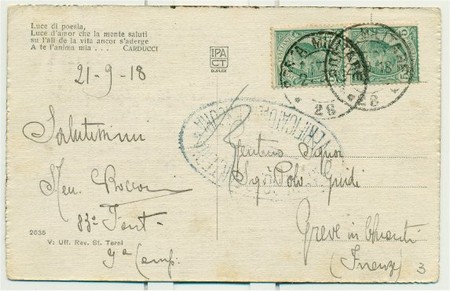 Luce di poesia,
Luce d'amor che la mente saluti
su l'ali de la vita ancor s'aderge
A te l'anima mia ... CARDUCCI
IPA
CT
21-9-18
POSTA MILITARE
28
POSTA MILITARE
28
VERIFICATO
Salutissimi
83º Fant.
9ª Comp.
Gentmo Signor
Sigr Polo Guidi
Greve in Chianti
(Firenze)
2636
V: Uff. Rev. St. Terni
3